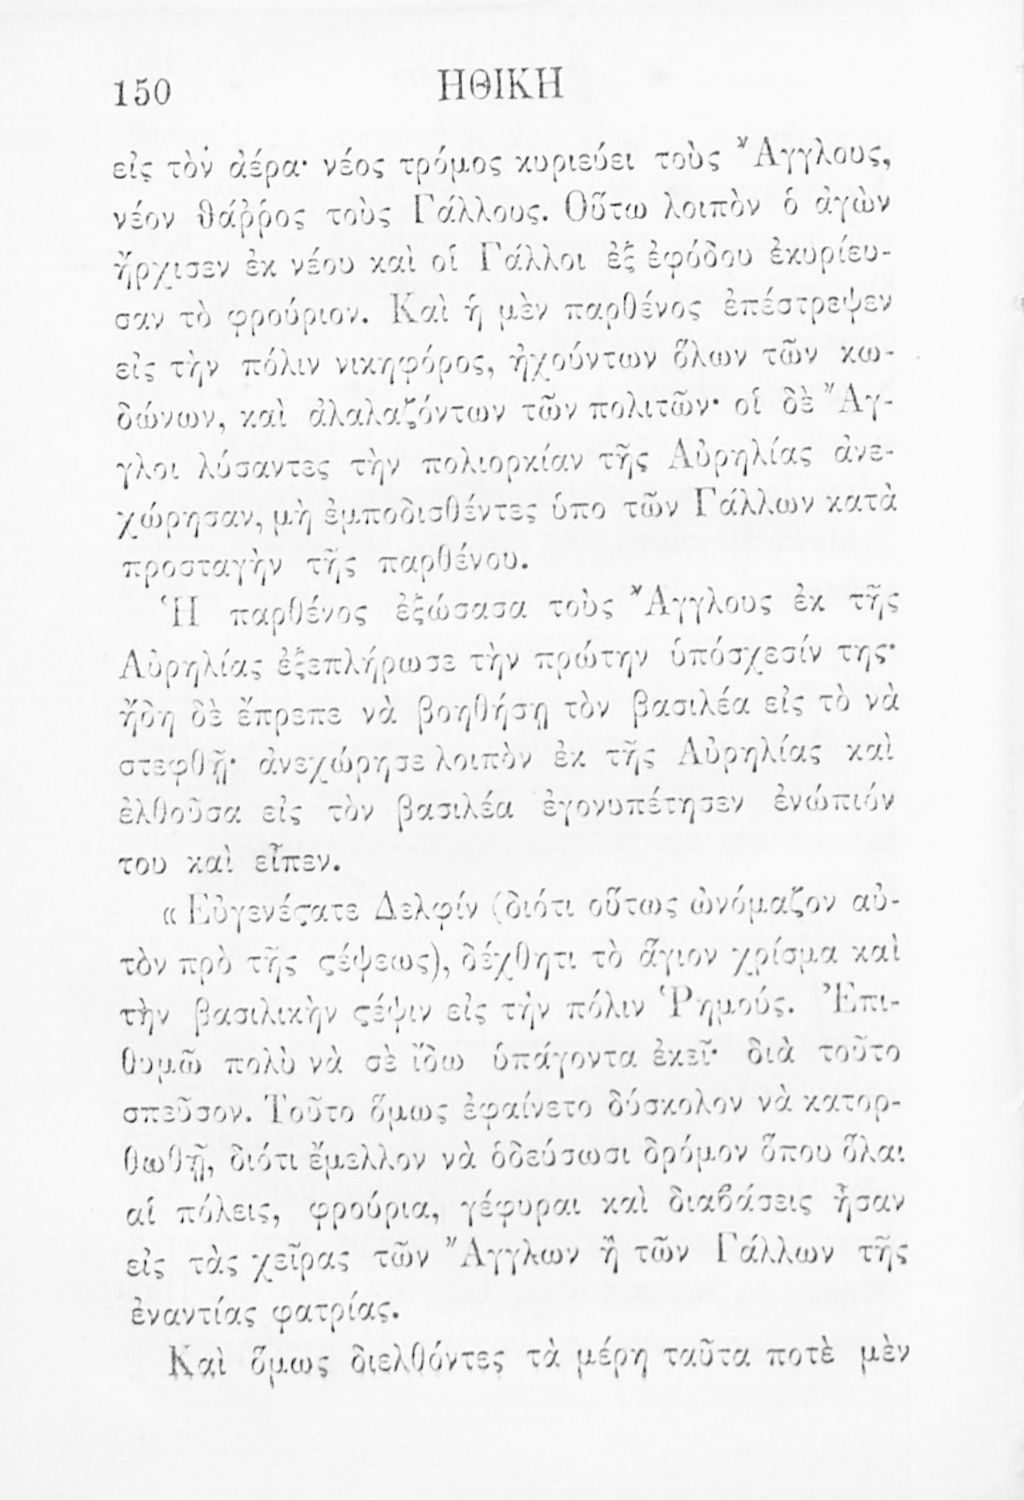 150 ΗΘΙΚΗ
εἰς τὸν ἀέρα· νέος τρόμος κυριεύει τοὺς Ἄγγλους,
νέον θάῤῥος τοὺς Γάλλους. Οὕτω λοιπὸν ὁ ἀγὼν
ἤρχισεν ἐκ νέου καὶ οἱ Γάλλοι ἐξ ἐφόδου ἐκυρίευ-
σαν τὸ φρούριον. Καὶ ἡ μὲν παρθένος ἐπέστρεψεν
εἰς τὴν πόλιν νικηφόρος, ἠχούντων ὅλων τῶν κω-
δώνων, καὶ ἀλαλαζόντων τῶν πολιτῶν· οἱ δὲ Ἄγ-
γλοι λύσαντες τὴν πολιορκίαν τῆς Αὐρηλίας ἀνε-
χώρησαν, μὴ ἐμποδισθέντες ὑπο τῶν Γάλλων κατὰ
προσταγὴν τῆς παρθένου.
Ἡ παρθένος ἐξώσασα τοὺς Ἄγγλους ἐκ τῆς
Αὐρηλίας ἐξεπλήρωσε τὴν πρώτην ὑπόσχεσίν της·
ἤδη δὲ ἔπρεπε νὰ βοηθήσῃ τὸν βασιλέα εἰς τὸ νὰ
στεφθῇ· ἀνεχώρησε λοιπὸν ἐκ τῆς Αὐρηλίας καὶ
ἐλθοῦσα εἰς τὸν βασιλέα ἐγονυπέτησεν ἐνώπιόν
του καὶ εἶπεν.
« Εὐγενέϛατε Δελφίν (διότι οὕτως ὠνόμαζον αὐ-
τὸν πρὸ τῆς ϛέψεως), δέχθητι τὸ ἅγιον χρίσμα καὶ
τὴν βασιλικὴν ϛέψιν εἰς τὴν πόλιν Ῥημούς. Ἐπι-
θυμῶ πολὺ νὰ σὲ ἴδω ὑπάγοντα ἐκεῖ· διὰ τοῦτο
σπεῦσον. Τοῦτο ὅμως ἐφαίνετο δύσκολον νὰ κατορ-
θωθῇ, διότι ἔμελλον νὰ ὁδεύσωσι δρόμον ὅπου ὅλαι
αἱ πόλεις, φρούρια, γέφυραι καὶ διαβάσεις ἦσαν
εἰς τὰς χεῖρας τῶν Ἄγγλων ἢ τῶν Γάλλων τῆς
ἐναντίας φατρίας.
Καὶ ὅμως διελθόντες τὰ μέρη ταῦτα ποτὲ μὲν